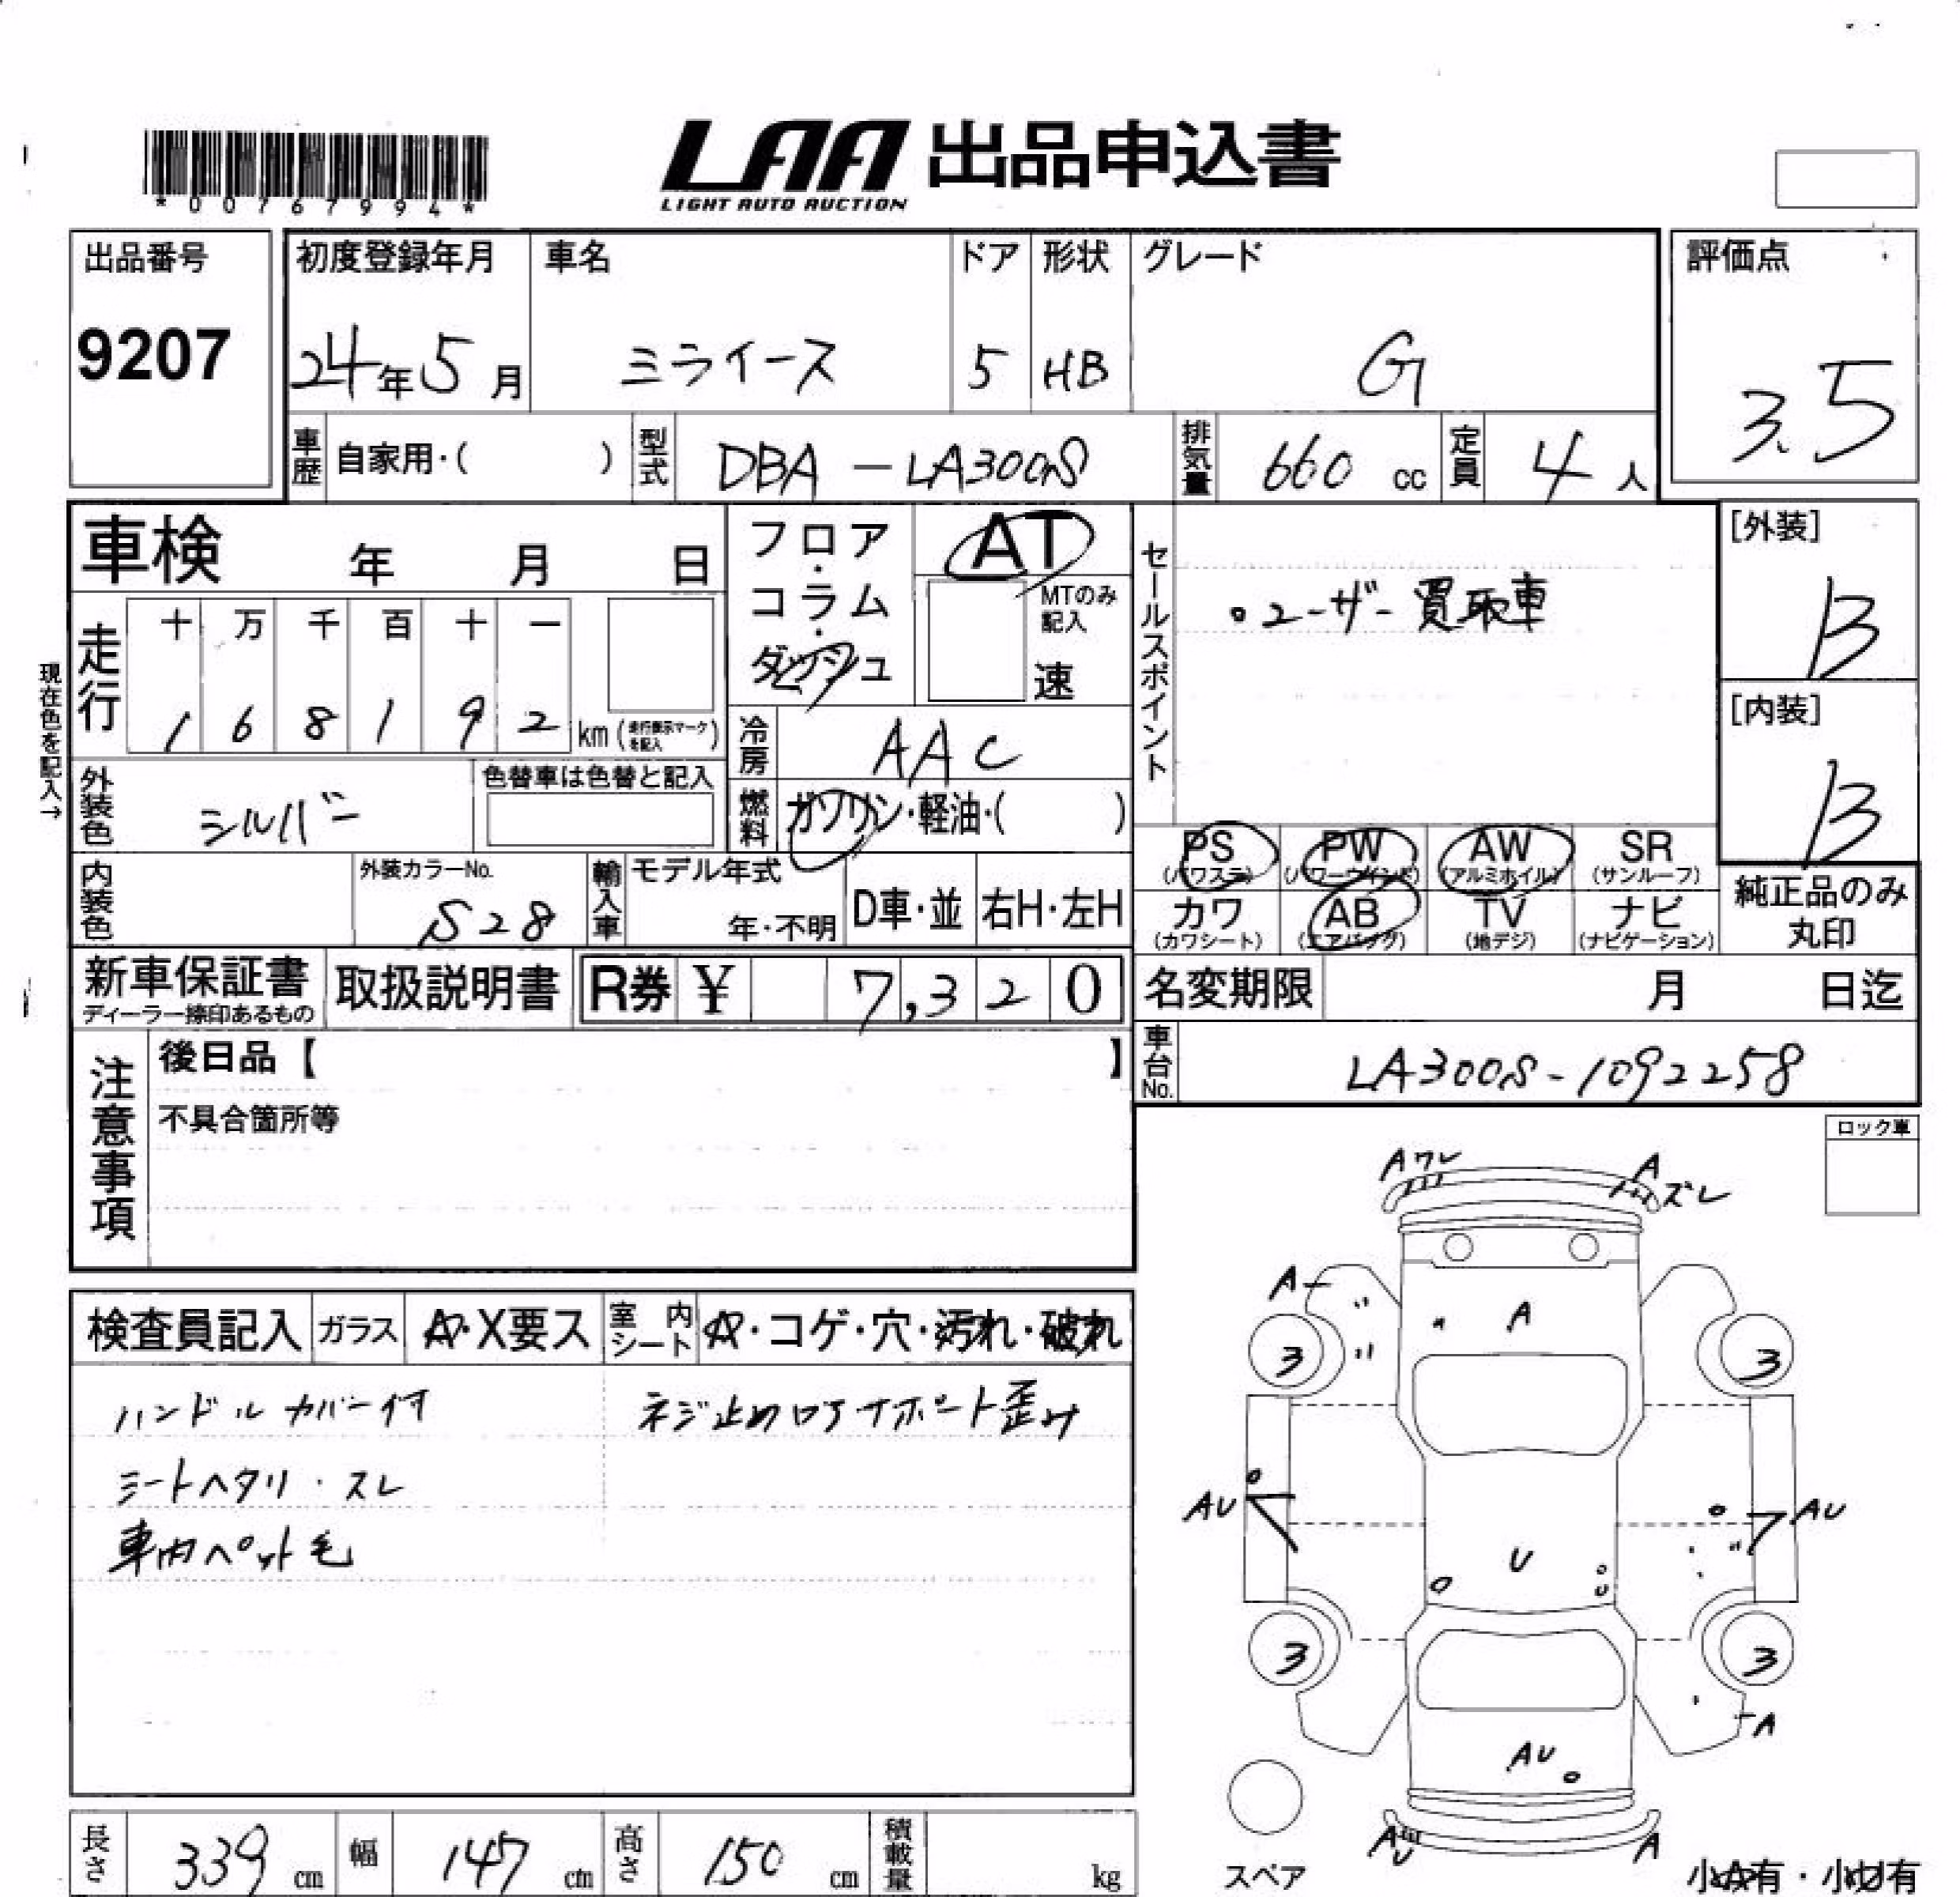 LAA 出品申込書
LIGHT AUTO AUCTION
*00767994*
出品番号
9207
初度登録年月
24年5月
車名
ミライース
ドア
5
形状
HB
グレード
G
評価点
3.5
車歴 自家用・( )
型式 DBA-LA300S
排気量 660 cc
定員 4人
車検 年 月 日
フロア・コラム・ダッシュ
AT
MTのみ記入
速
セールスポイント
・ユーザー買取車
[外装]
B
[内装]
B
現在色を記入→
走行
十 万 千 百 十 一
1 6 8 1 9 2 km (走行表示マークを記入)
冷房 AAC
燃料 ガソリン・軽油・( )
外装色 シルバー
色替車は色替と記入
内装色
外装カラーNo.
S28
輸入車
モデル年式
年・不明
D車・並
右H・左H
PS (パワステ)
PW (パワーウインド)
AW (アルミホイル)
SR (サンルーフ)
カワ (カワシート)
AB (エアバッグ)
TV (地デジ)
ナビ (ナビゲーション)
純正品のみ
丸印
新車保証書
ディーラー捺印あるもの
取扱説明書
R券 ¥ 7,320
名変期限 月 日迄
車台No. LA300S-1092258
注意事項
後日品【 】
不具合箇所等
ロック車
検査員記入
ガラス A・X要ス
室内シート A・コゲ・穴・汚れ・破れ
ハンドルカバー付
シートヘタリ・スレ
車内ペット毛
ネジ止めロアサポート歪み
Aワレ
A ズレ
A
A
3
3
AU
AU
U
3
3
A
AU
AU
A
スペア
小A有・小U有
長さ 339 cm
幅 147 cm
高さ 150 cm
積載量 kg